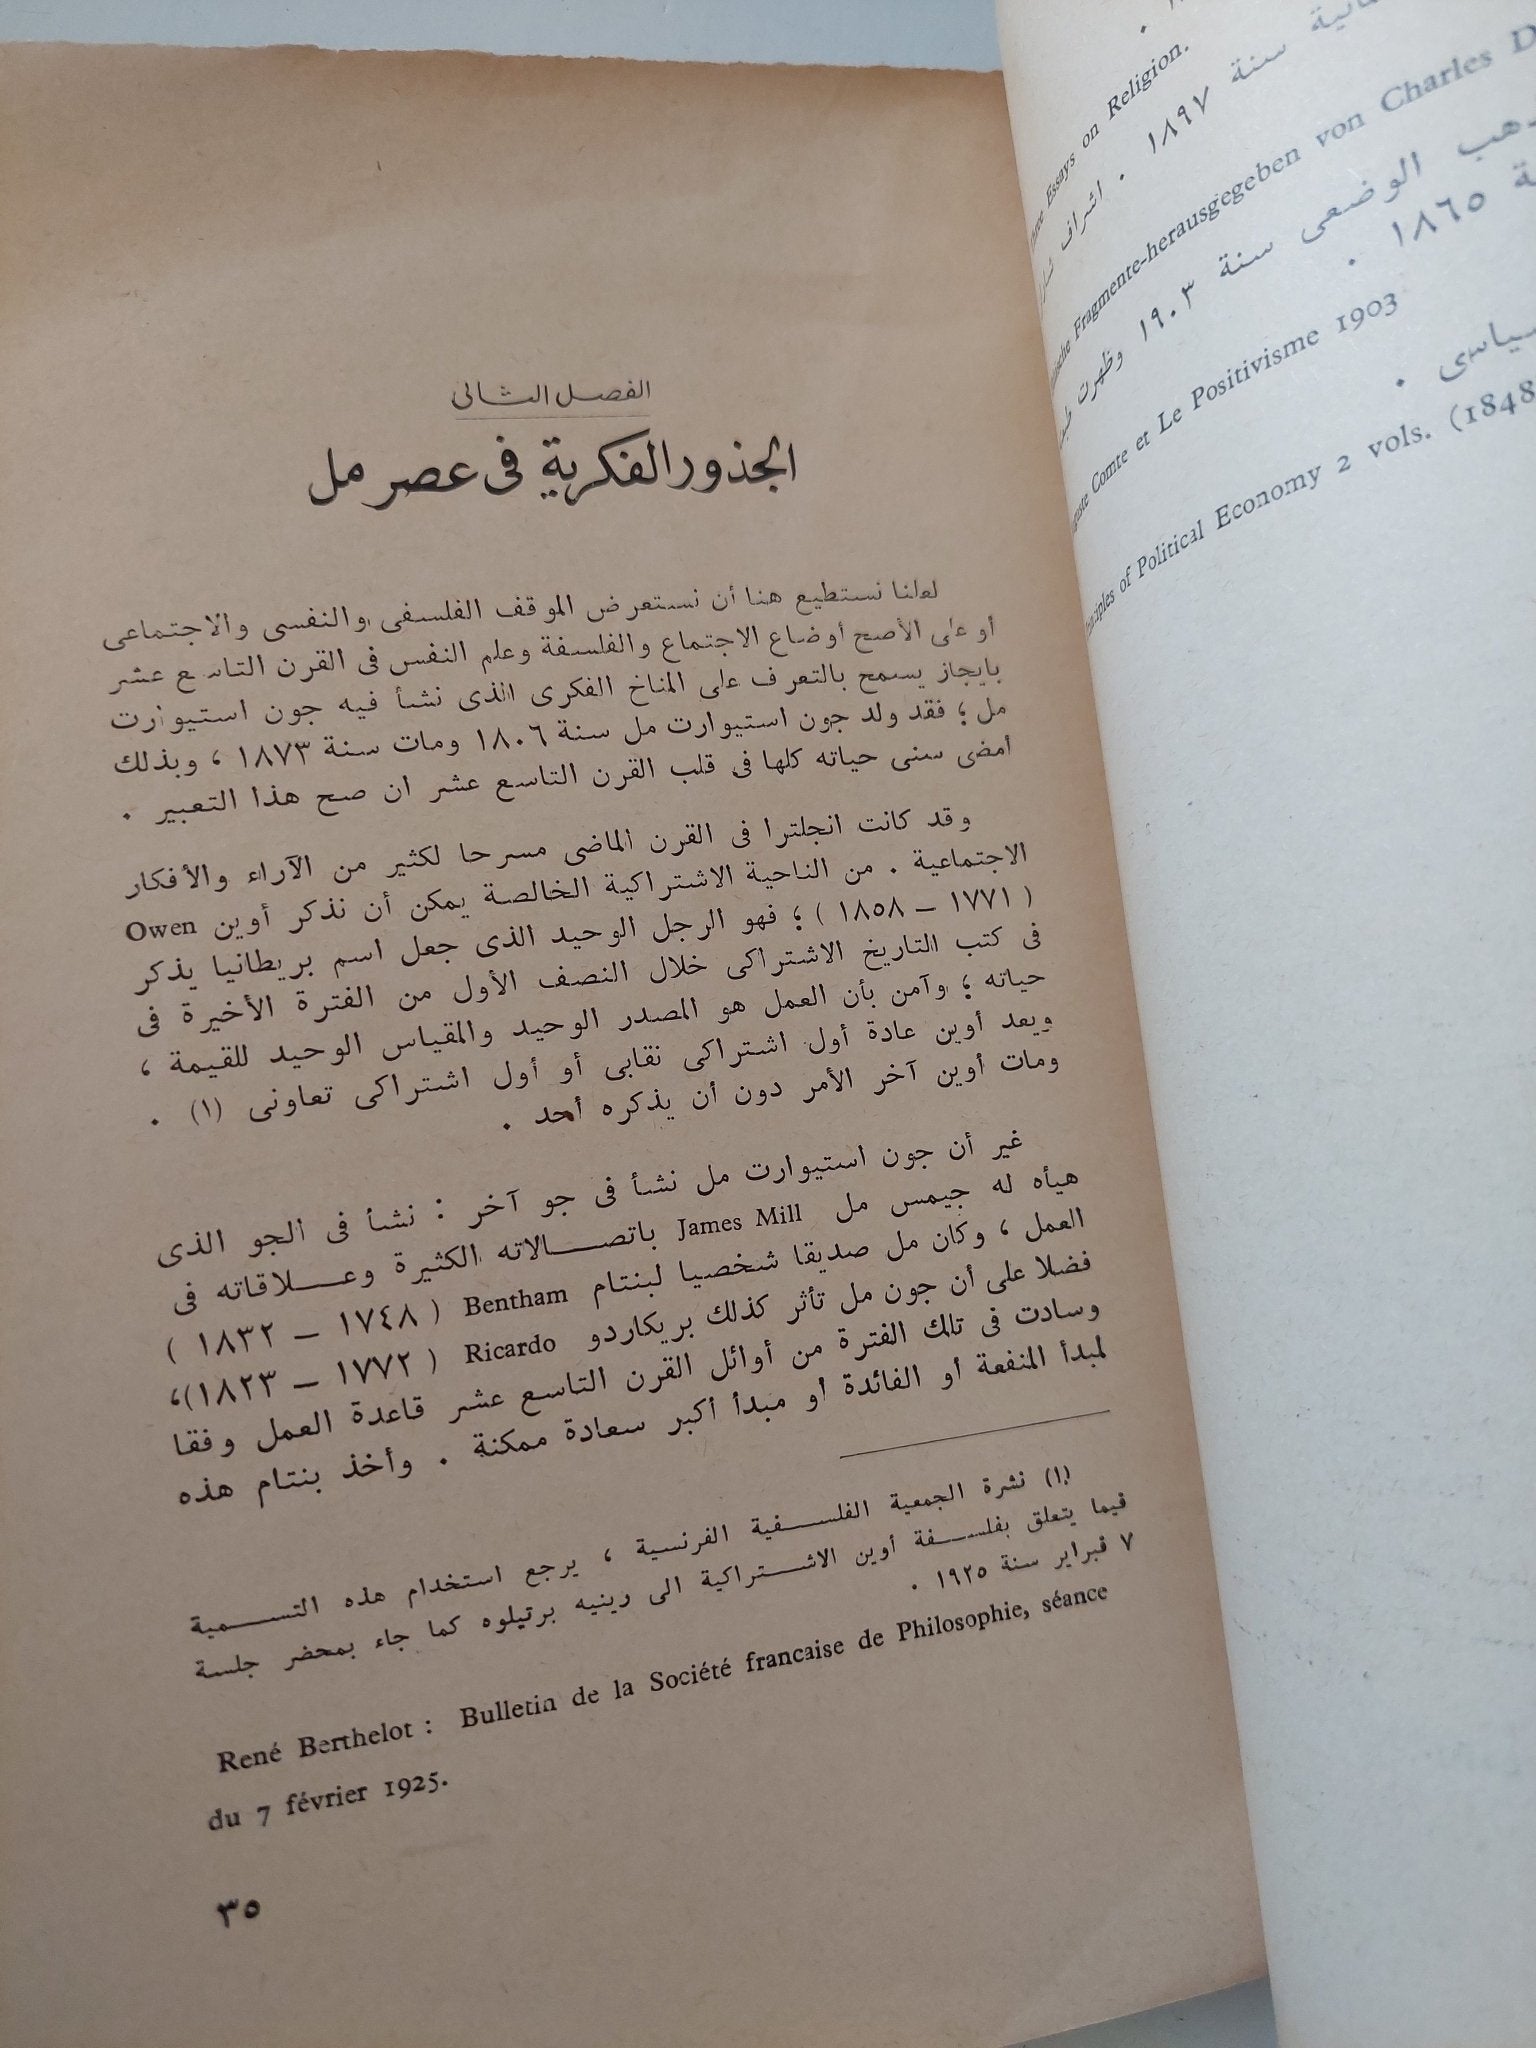 الفصل الثانى
الجذور الفكرية فى عصر مل
لعلنا نستطيع هنا أن نستعرض الموقف الفلسفى والنفسى والاجتماعى
أو على الأصح أوضاع الاجتماع والفلسفة وعلم النفس فى القرن التاسع عشر
بايجاز يسمح بالتعرف على المناخ الفكرى الذى نشأ فيه جون استيوارت
مل ؛ فقد ولد جون استيوارت مل سنة ١٨٠٦ ومات سنة ١٨٧٣ ، وبذلك
أمضى سنى حياته كلها فى قلب القرن التاسع عشر ان صح هذا التعبير .
وقد كانت انجلترا فى القرن الماضى مسرحا لكثير من الآراء والأفكار
الاجتماعية . من الناحية الاشتراكية الخالصة يمكن أن نذكر أوين Owen
( ١٧٧١ – ١٨٥٨ ) ؛ فهو الرجل الوحيد الذى جعل اسم بريطانيا يذكر
فى كتب التاريخ الاشتراكى خلال النصف الأول من الفترة الأخيرة فى
حياته ؛ وآمن بأن العمل هو المصدر الوحيد والمقياس الوحيد للقيمة ،
ويعد أوين عادة أول اشتراكى نقابى أو أول اشتراكى تعاونى (١) .
ومات أوين آخر الأمر دون أن يذكره أحد .
غير أن جون استيوارت مل نشأ فى جو آخر : نشأ فى الجو الذى
هيأه له جيمس مل James Mill باتصالاته الكثيرة وعلاقاته فى
العمل ، وكان مل صديقا شخصيا لبنتام Bentham ( ١٧٤٨ – ١٨٣٢ )
فضلا على أن جون مل تأثر كذلك بريكاردو Ricardo ( ١٧٧٢ – ١٨٢٣)،
وسادت فى تلك الفترة من أوائل القرن التاسع عشر قاعدة العمل وفقا
لمبدأ المنفعة أو الفائدة أو مبدأ أكبر سعادة ممكنة . وأخذ بنتام هذه
(١) نشرة الجمعية الفلسفية الفرنسية ، يرجع استخدام هذه التسمية
فيما يتعلق بفلسفة أوين الاشتراكية الى رينيه برتيلوه كما جاء بمحضر جلسة
٧ فبراير سنة ١٩٢٥ .
René Berthelot : Bulletin de la Société francaise de Philosophie, séance
du 7 février 1925.
٣٥
Essays on Religion.
سنة ١٨٩٧ . اشراف
Fragmente-herausgegeben von Charles
الوضعى سنة ١٩٠٣ وظهرت
١٨٦٥ .
Comte et Le Positivisme 1903
of Political Economy 2 vols. (1848